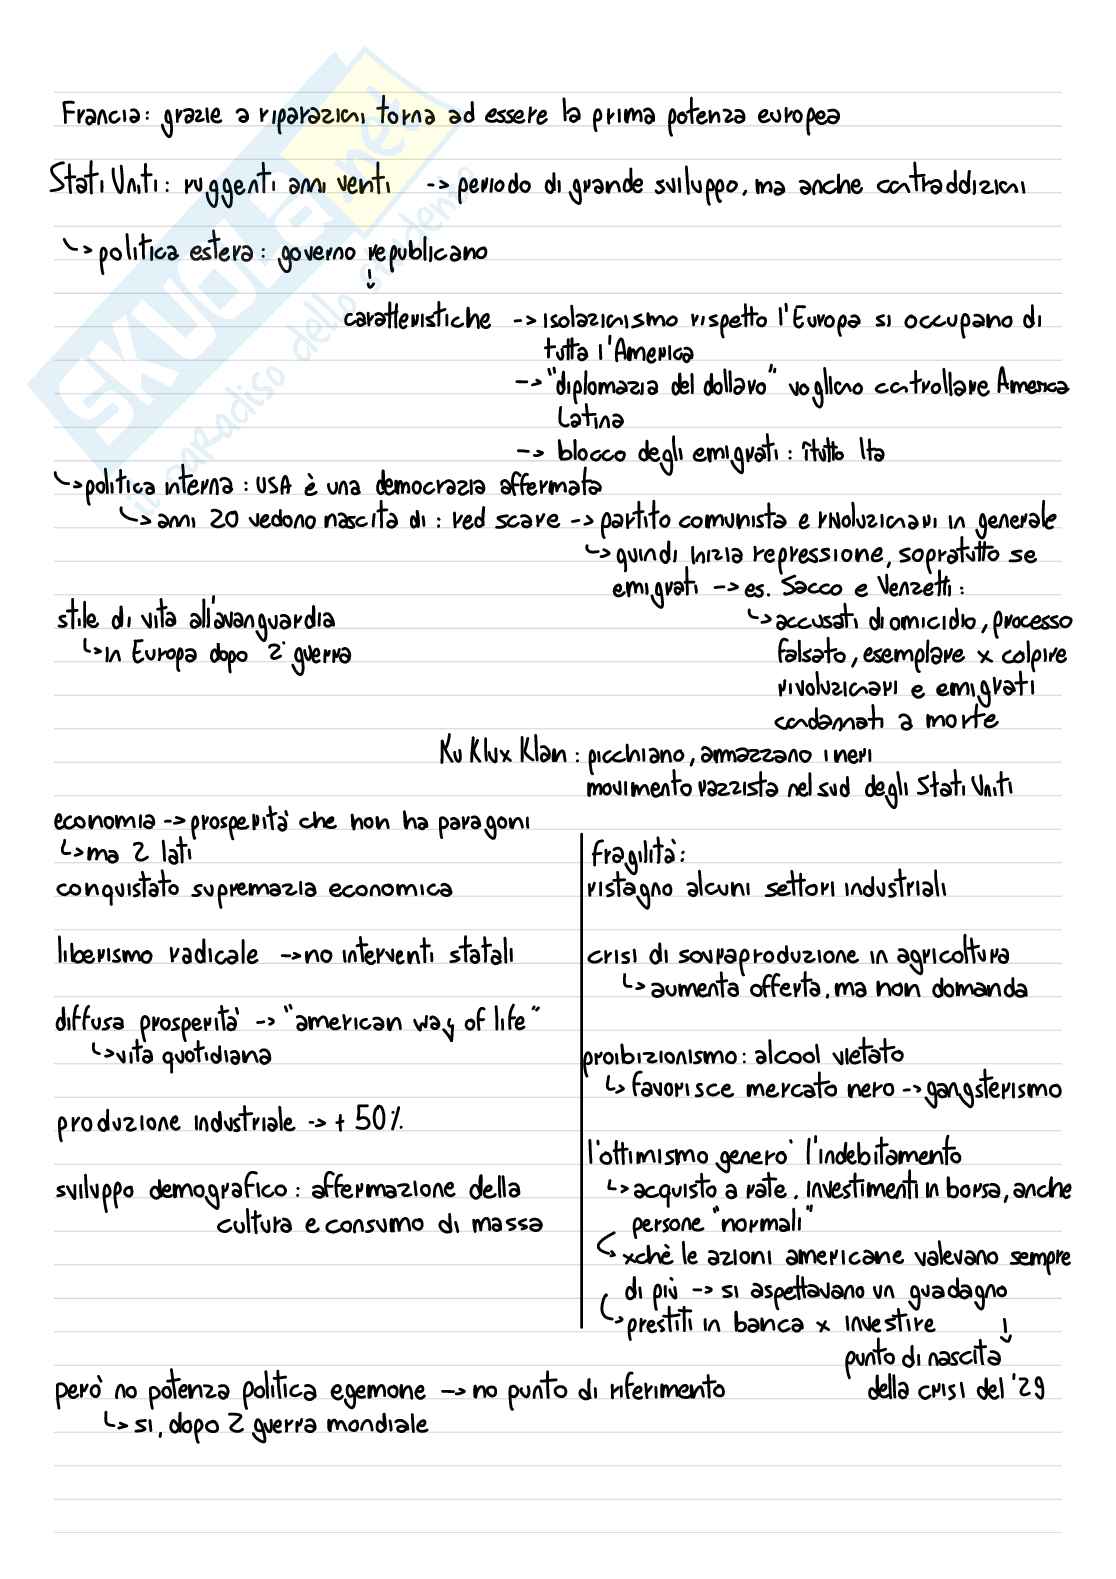 Francia: grazie a riparazioni torna ad essere la prima potenza europea
Stati Uniti: ruggenti anni venti -> periodo di grande sviluppo, ma anche contraddizioni
↳ politica estera: governo republicano
↓
caratteristiche -> isolazionismo rispetto l'Europa si occupano di
tutta l'America
-> "diplomazia del dollaro" vogliono controllare America
Latina
-> blocco degli emigrati:
↳ politica interna: USA è una democrazia affermata
↳ anni 20 vedono nascita di: red scare -> partito comunista e rivoluzionari in generale
↳ quindi inizia repressione, sopratutto se
emigrati -> es. Sacco e Venzetti:
stile di vita all'avanguardia
↳ in Europa dopo 2° guerra
↳ accusati di omicidio, processo
falsato, esemplare x colpire
rivoluzionari e emigrati
condannati a morte
Ku Klux Klan: picchiano, ammazzano i neri
movimento razzista nel sud degli Stati Uniti
economia -> prosperità che non ha paragoni
↳ ma 2 lati
conquistato supremazia economica
liberismo radicale -> no interventi statali
diffusa prosperità -> "american way of life"
↳ vita quotidiana
produzione industriale -> + 50%
sviluppo demografico: affermazione della
cultura e consumo di massa
fragilità:
ristagno alcuni settori industriali
crisi di sovraproduzione in agricoltura
↳ aumenta offerta, ma non domanda
proibizionismo: alcool vietato
↳ favorisce mercato nero -> gangsterismo
l'ottimismo generò l'indebitamento
↳ acquisto a rate, investimenti in borsa, anche
persone "normali"
↳ xchè le azioni americane valevano sempre
di più -> si aspettavano un guadagno
↳ prestiti in banca x investire ↓
punto di nascita
della crisi del '29
però no potenza politica egemone -> no punto di riferimento
↳ si, dopo 2 guerra mondiale
SKUOLA.net
il paradiso dello studente